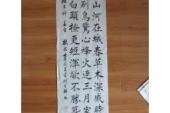 山河在城春草木深感時
別鳥驚心烽火連三月家
白頭搔更短渾欲不勝簪